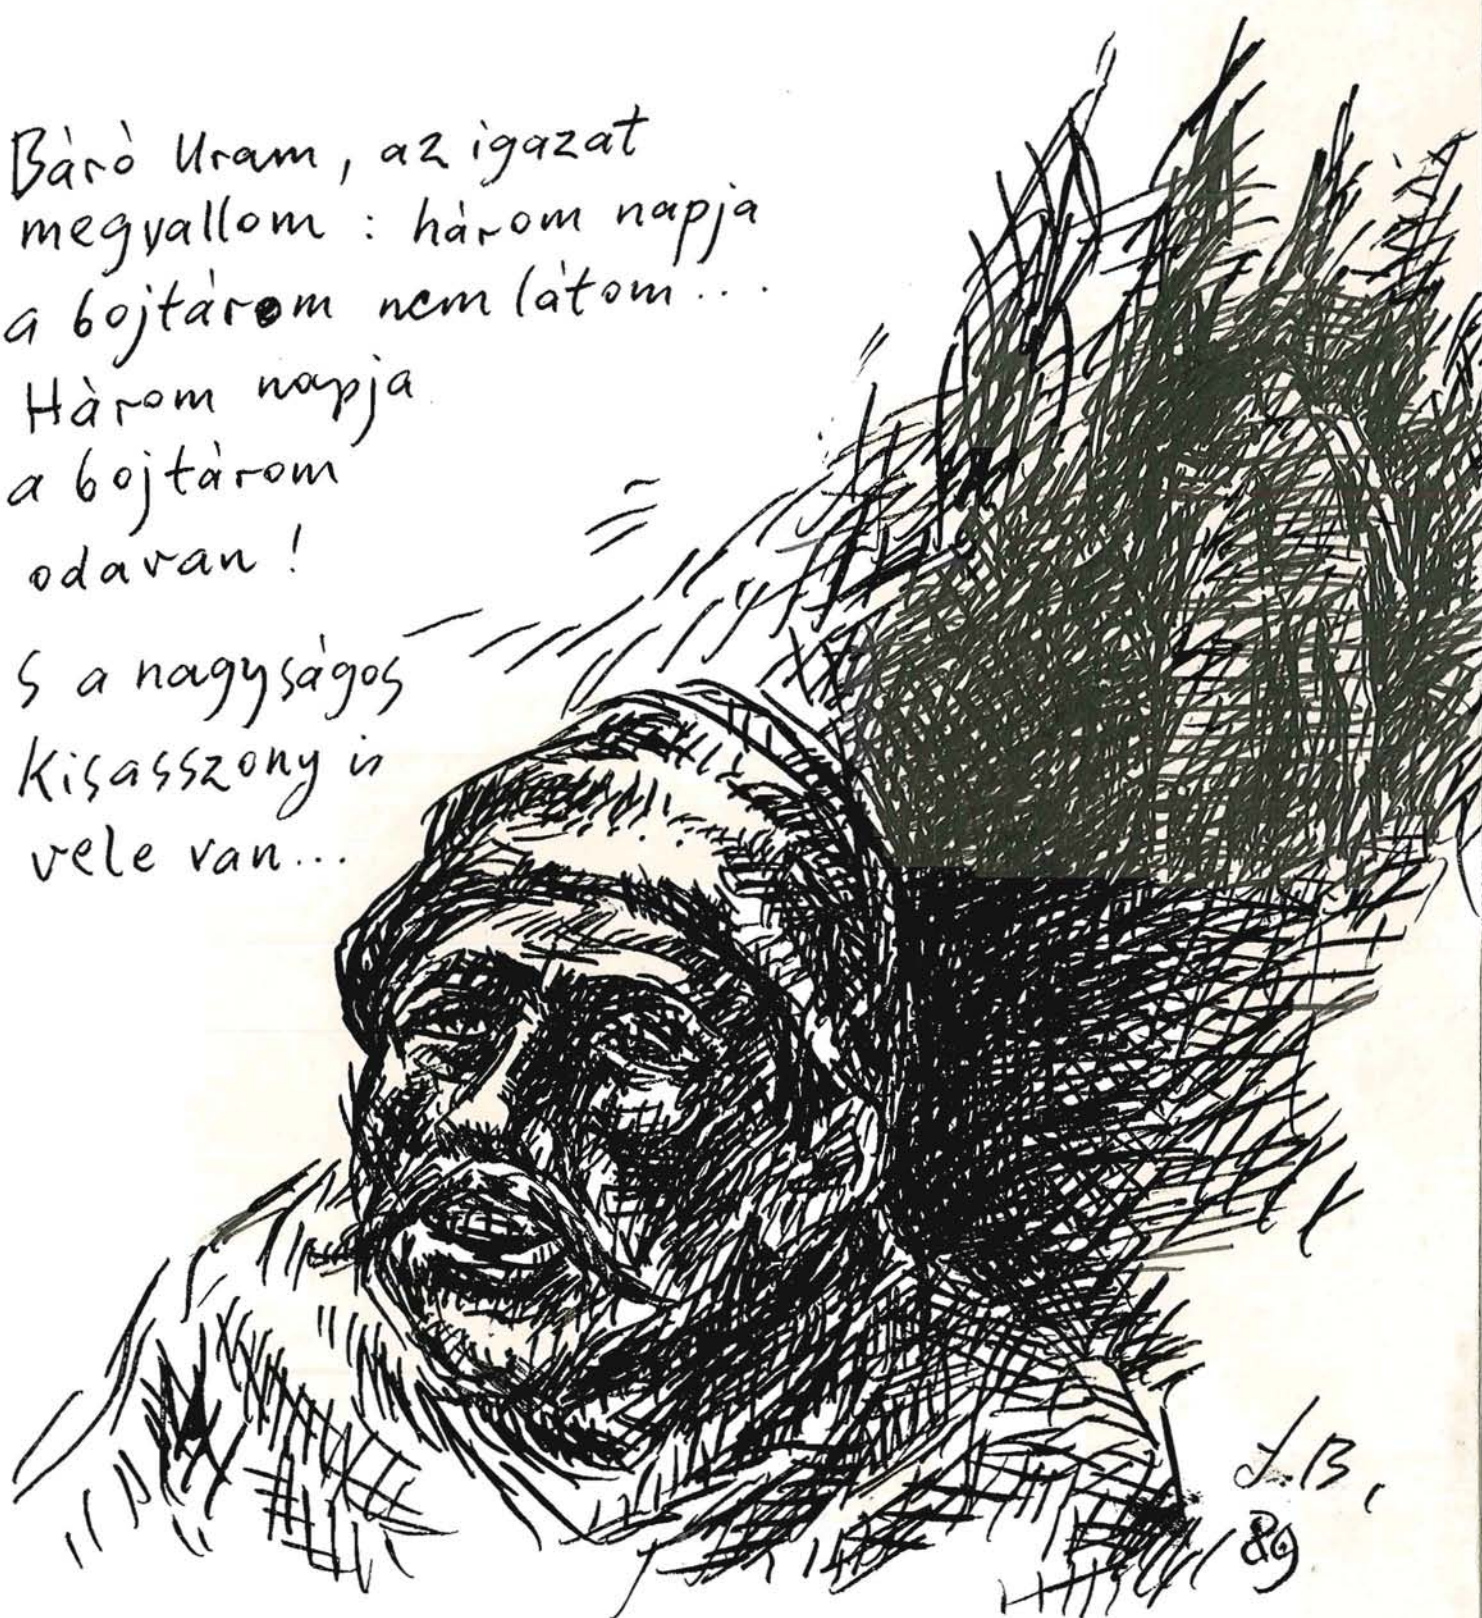 Bàrò Uram, az igazat
megvallom : három napja
a bojtárom nem látom...
Hàrom napja
a bojtàrom
odavan!
S a nagyságos
Kisasszony is
vele van...
L.B.
89